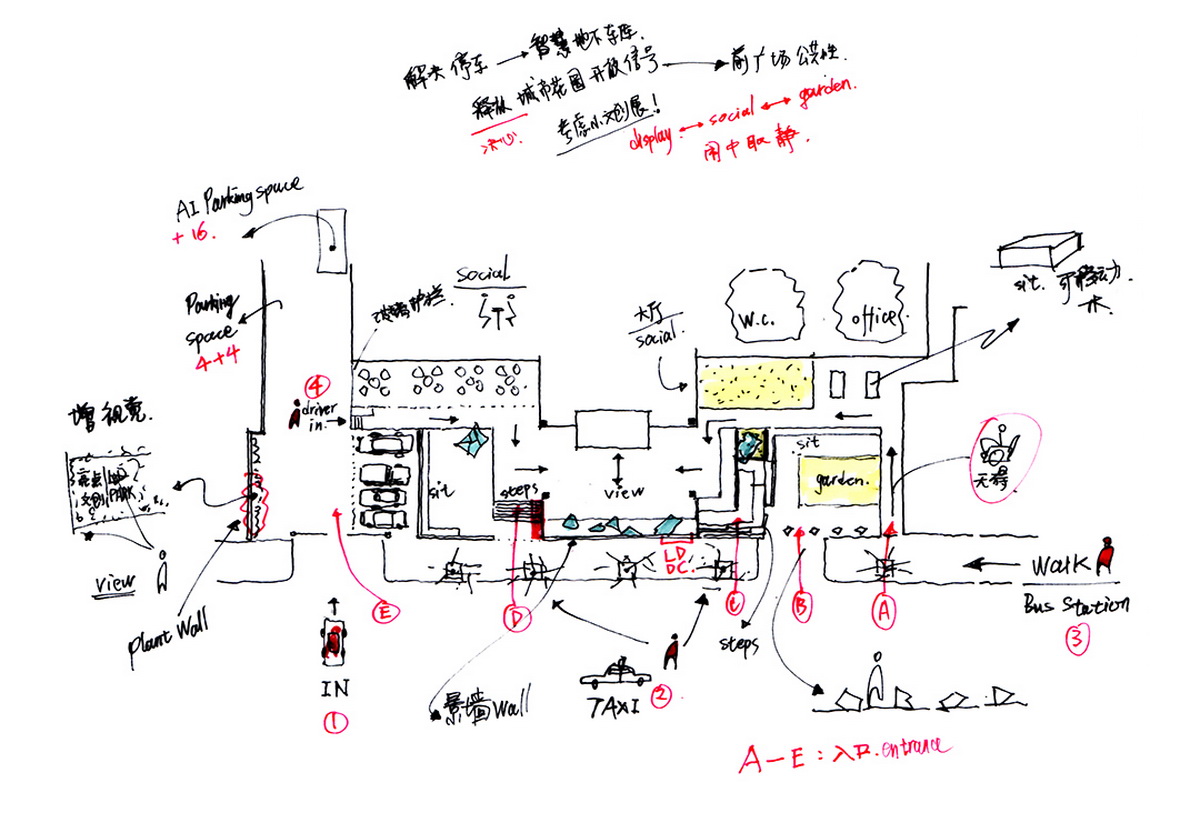 解决停车 → 智慧地下车库.
释放 城市花园 开放信号 → 前广场公共性.
决心
考虑小文创展!
display ↔ social ↔ garden.
闹中取静.
AI Parking space
+16.
Parking
space
4+4
social
大厅
social
W.C.
office
sit. 可移动力
④
driver
in
增视觉.
sit
steps
view
sit
garden.
LD
DC.
view
plant Wall
E
D
C
B
A
WALK
Bus Station
③
steps
IN
①
景墙Wall
TAXI
②
A—E: 入口.entrance